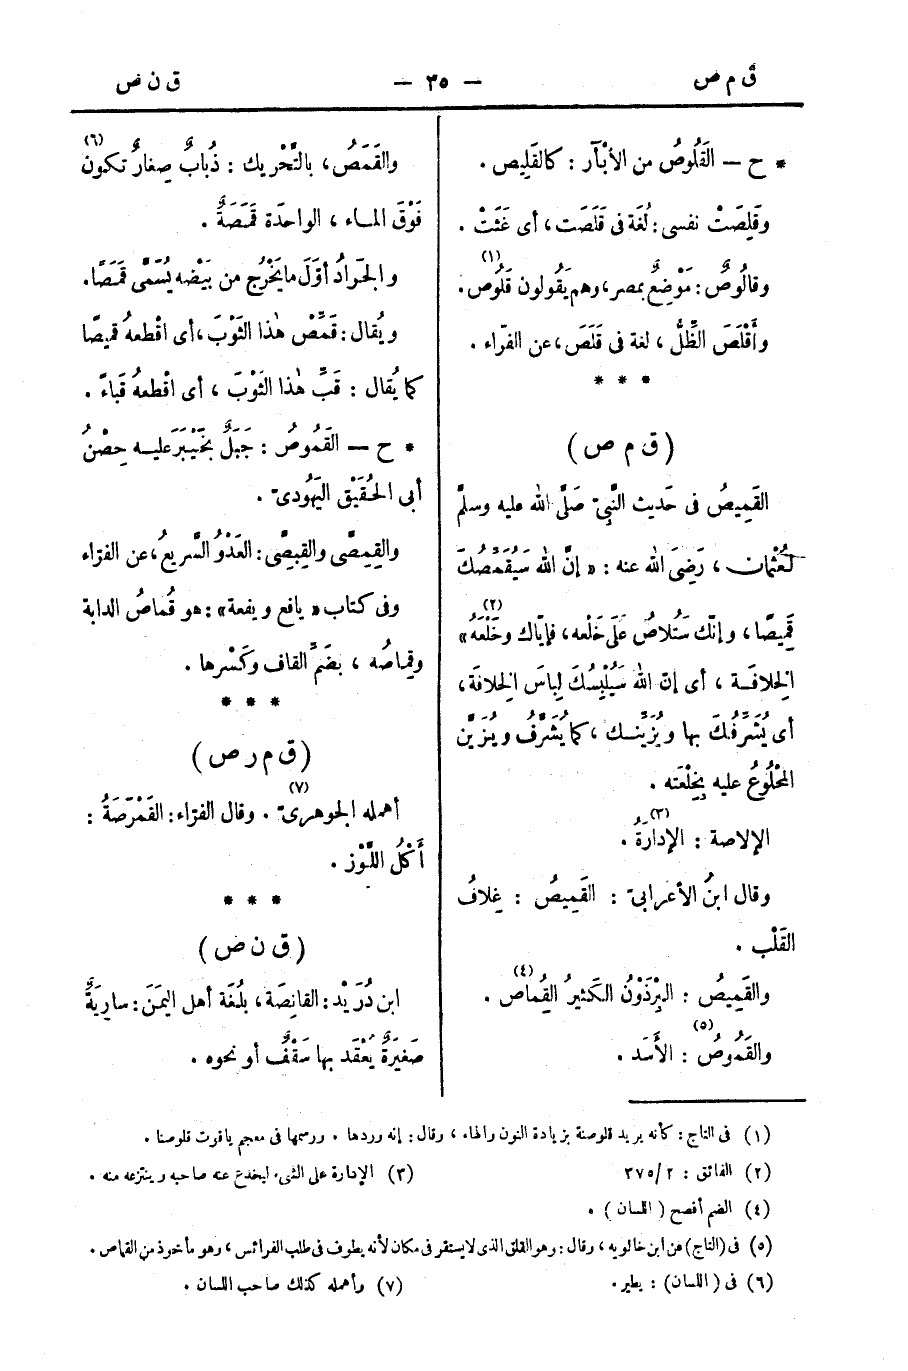 ق م ص — ٣٥ — ق ن ص
* ح — القَلُوصُ من الأبْآر : كالقَلِيص .
وقَلِصَتْ نفسى : لُغَة فى قَلَصَت ، أى غَثَتْ .
وقالُوصٌ : مَوْضِعٌ بمصر ، وهم يَقُولون قَلُوص (١) .
وأَقْلَصَ الظِّلُّ ، لغة فى قَلَصَ ، عن الفرّاء .
* * *
( ق م ص )
القَمِيصُ فى حَديث النَّبِىّ صَلَّى الله عليه وسلَّم
لعُثْمان ، رَضِىَ الله عنه : « إنَّ الله سَيُقَمِّصُكَ
قَمِيصًا ، وإنّك سَتُلاصُ عَلَى خَلْعه ، فإيّاك وخَلْعَهُ (٢) »
الخِلافَة ، أى إنّ الله سَيُلْبِسُكَ لِباسَ الخِلافَة ،
أى يُشَرِّفُكَ بها ويُزَيِّنُك ، كما يُشَرَّفُ ويُزَيَّن
المَخْلُوعُ عليه بِخِلْعَته .
الإلاصة : الإدارَةُ (٣) .
وقال ابنُ الأعرابىّ : القَمِيصُ : غِلافُ
القَلْب .
والقَمِيصُ : البِرْذَوْنُ الكَثِيرُ القُماص (٤) .
والقَمُوصُ (٥) : الأَسَد .
والقَمَصُ ، بالتَّحْريك : ذُبابٌ صِغارٌ تكون (٦)
فَوْقَ المـاء ، الواحدَة قَمَصَةٌ .
والجَرادُ أوّلَ ما يَخْرُج من بَيْضه يُسَمَّى قَمَصًا .
ويُقال : قَمِّصْ هٰذا الثَوْبَ ، أى اقْطعهُ قَميصًا
كما يُقال : قَبِّ هٰذا الثَوْبَ ، أى اقْطعهُ قَباءً .
* ح — القَمُوصُ : جَبَلٌ بخَيْبَرَ عليه حِصْنُ
أبى الحُقَيْق اليَهُودىّ .
والقِمِصَّى والقِبِصَّى : العَدْوُ السَّريعُ ، عن الفرّاء
وفى كتاب « يافع ويفعة » : هو قُماصُ الدابة
وقِماصُه ، بضَمِّ القاف وكَسْرها .
* * *
( ق م ر ص )
أهمله الجوهرىّ (٧) . وقال الفرّاء : القَمْرَصَةُ :
أَكْلُ اللَّوْز .
* * *
( ق ن ص )
ابن دُرَيْد : القانِصَة ، بلُغَة أهل اليمَنَ : سارِيَةٌ
صَغيرَةٌ يُعْقَد بها سَقْفٌ أو نحوه .
(١) فى التاج : كأنه يريد قلوصنة بزيادة النون والهاء ، وقال : إنه وردها . ورسمها فى معجم ياقوت قلوصنا .
(٢) الفائق : ٢/٣٧٥ (٣) الإدارة على الشىء ليخدع عنه صاحبه وينتزعه منه .
(٤) الضم أفصح ( اللسان ) .
(٥) فى (التاج) عن ابن خالويه ، وقال : وهو القلق الذى لا يستقر فى مكان لأنه يطوف فى طلب الفرائس ، وهو مأخوذ من القماص .
(٦) فى ( اللسان ) : يطير . (٧) وأهمله كذلك صاحب اللسان .